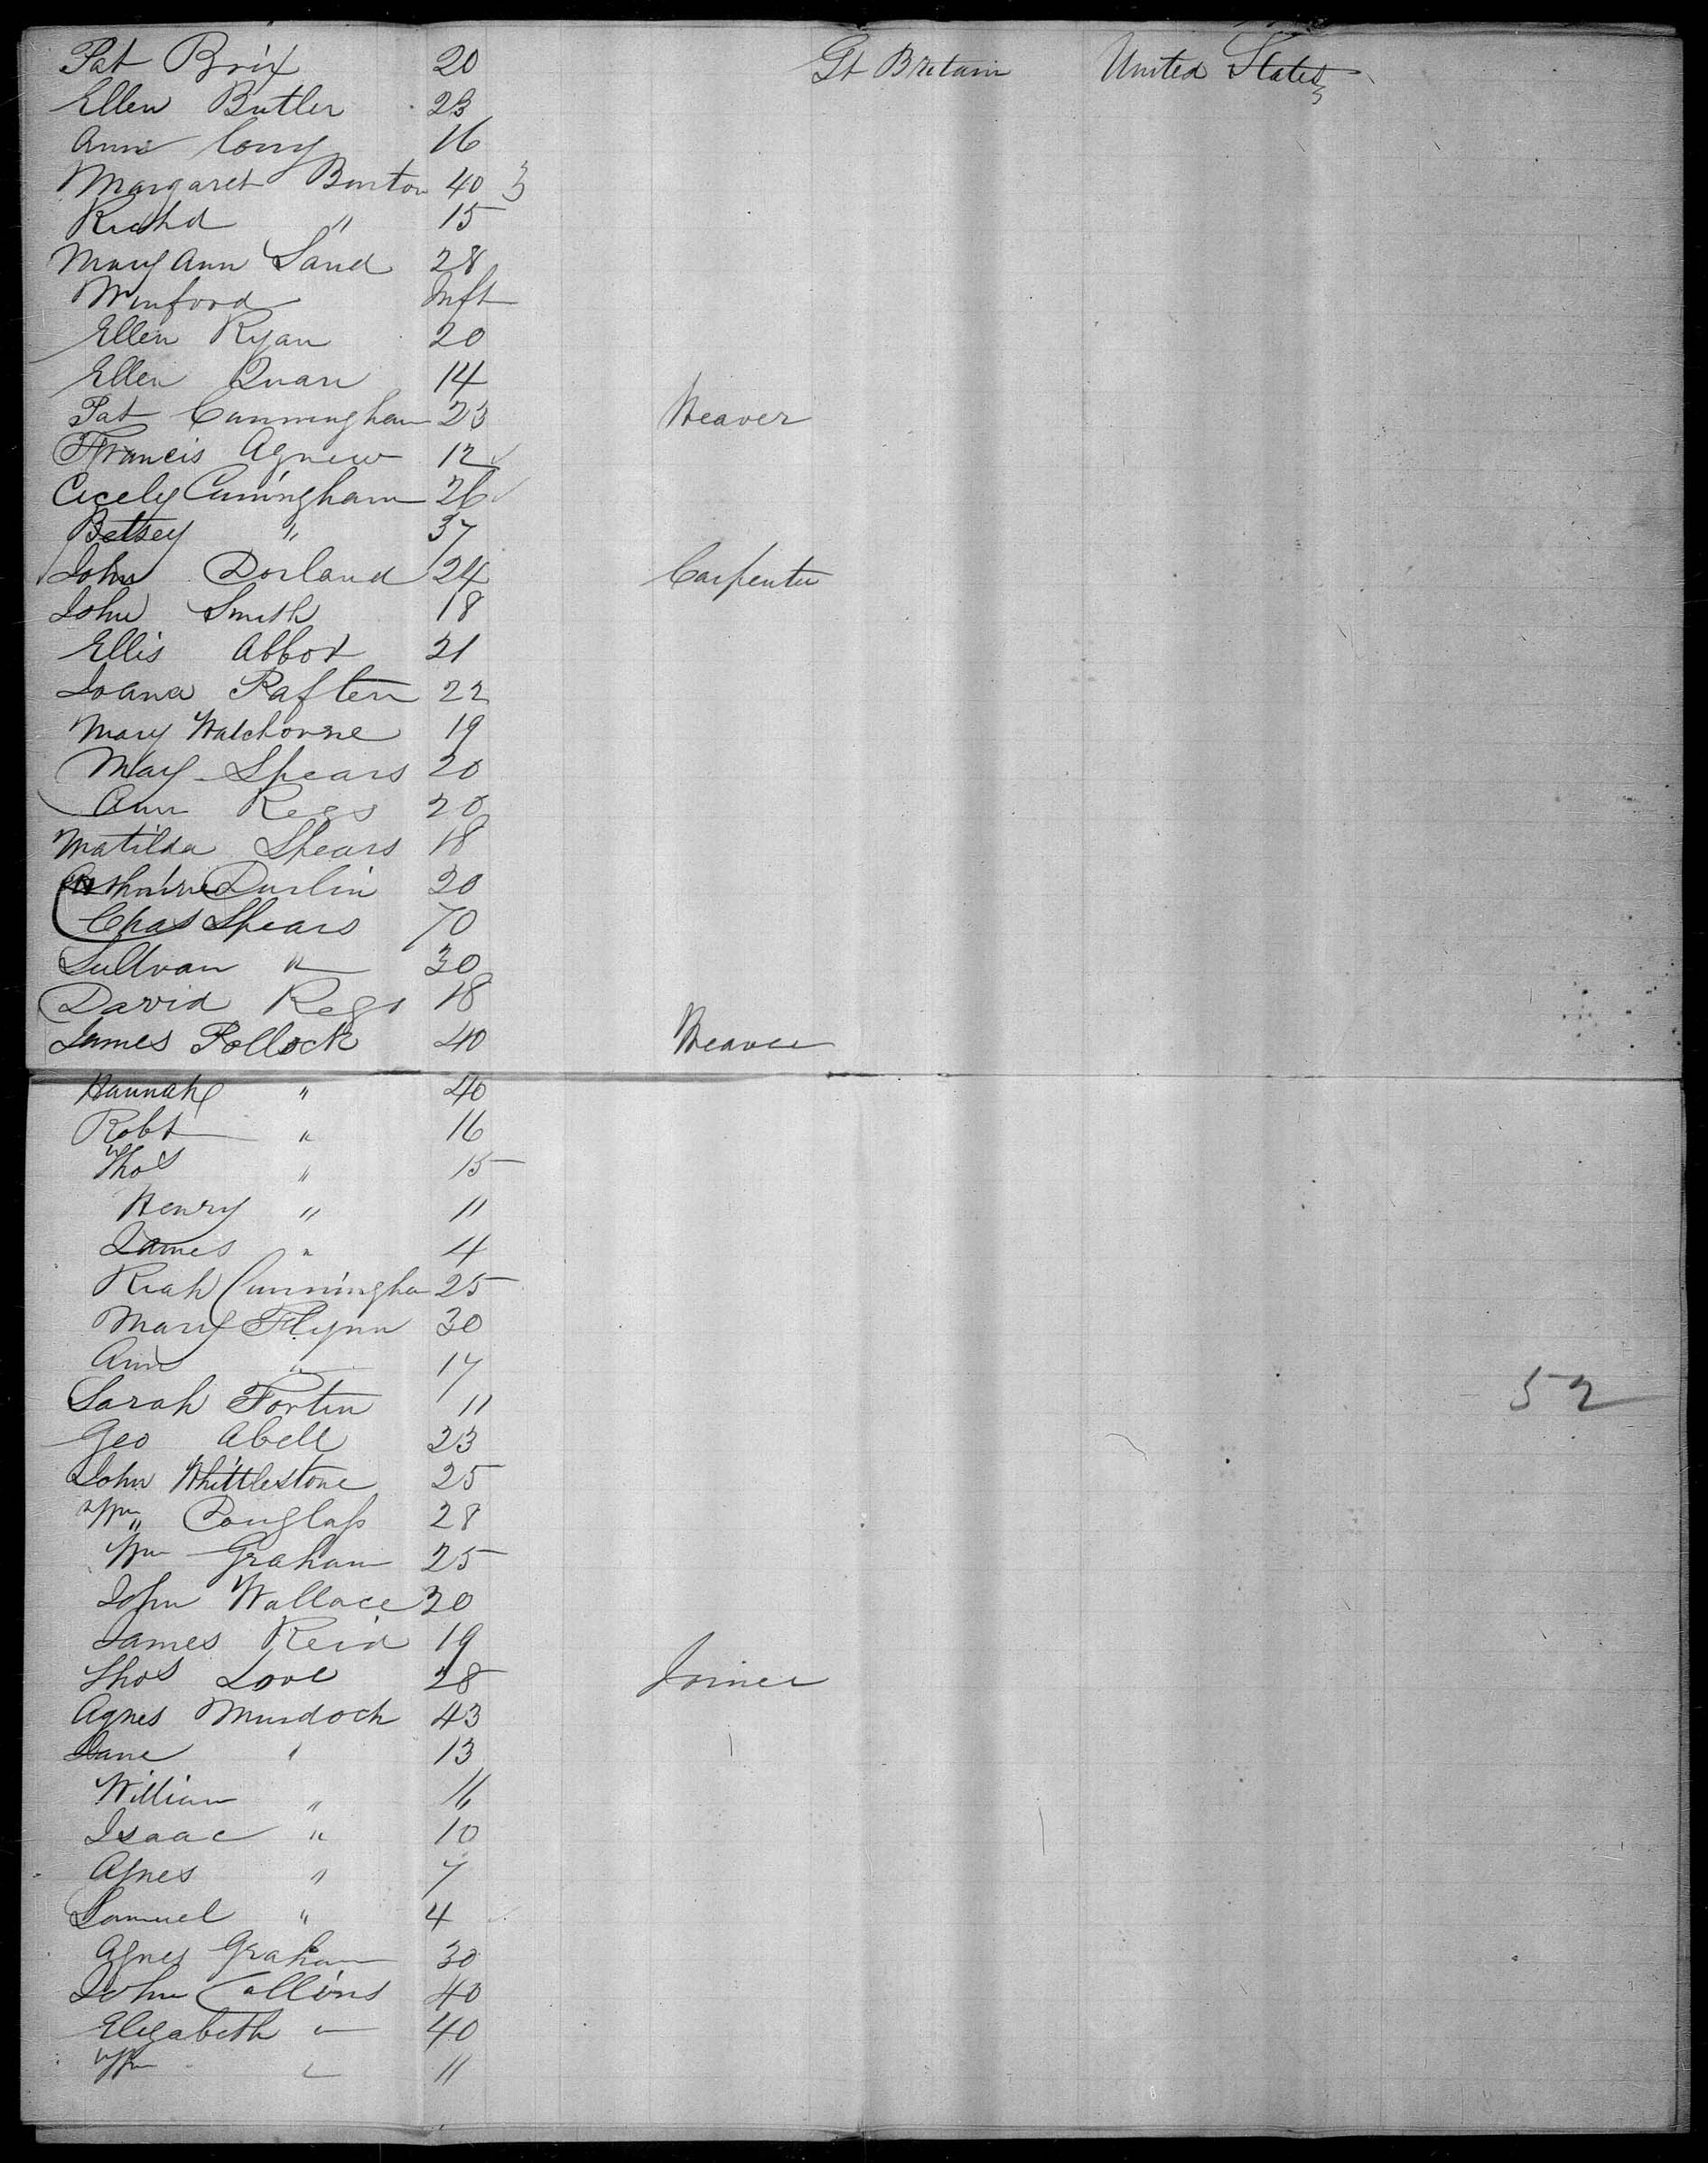 Pat Brix 20 Gt Britain United States
Ellen Butler 23
Ann Cony 16
Margaret Burton 40
Richd " 15
Mary Ann Sand 28
Winford Inft
Ellen Ryan 20
Ellen Quan 14
Pat Cunningham 23 Weaver
Francis Agnew 12
Cicely Cuningham 26
Betsey " 37
John Dorland 24 Carpenter
John Smith 18
Ellis Abbot 21
Joana Raften 22
Mary Watchorne 19
Mary Spears 20
Ann Regs 20
Matilda Spears 18
Durlin 20
Chas Spears 70
Sullvan " 30
David Regs 18
James Pollock 40 Weaver
Hannah " 40
Robt " 16
Thos " 15
Henry " 11
James " 4
Cunningha 25
Mary Flynn 30
Ann " 17
Sarah Fortin 11 52
Geo Abell 23
John Whittlestone 25
Wm Douglass 28
Wm Graham 25
John Wallace 20
James Reid 19
Thos Love 28 Joiner
Agnes Murdoch 43
Jane " 13
William " 16
Isaac " 10
Agnes " 7
Samuel " 4
Agnes Graham 30
John Collins 40
Elizabeth " 40
Wm " 11